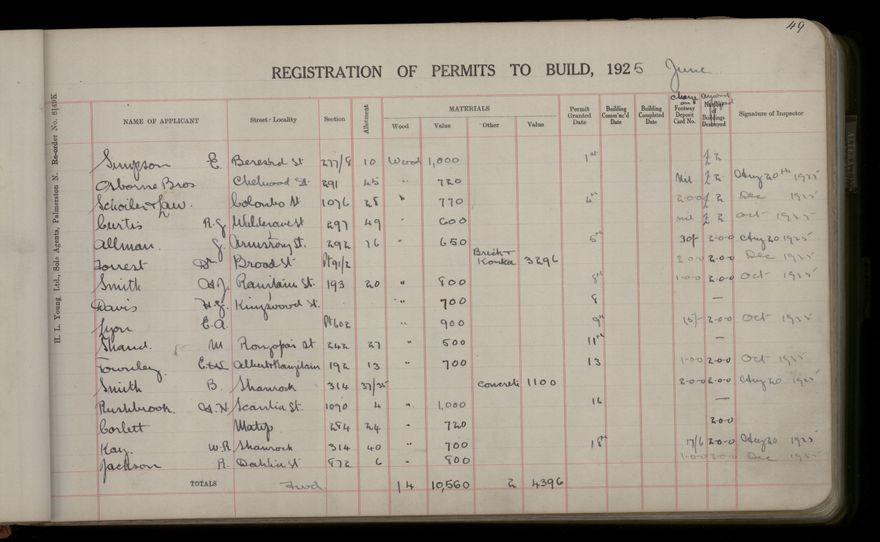 49
REGISTRATION OF PERMITS TO BUILD, 1925 June
H. L. Young, Ltd., Sole Agents, Palmerston N. Re-order No. 6149K
NAME OF APPLICANT Street - Locality Section Allotment MATERIALS Wood Value Other Value Permit Granted Date Building Comm'nc'd Date Building Completed Date Footway Deposit Card No. Number of Buildings Destroyed Signature of Inspector
Simpson E. Beresfd St 277/8 10 Wood 1,000 1st £2
Osborne Bros Chelwood St 291 45 " 720 Nil £2 Aug 20th 1925
Colombo St 1076 28 " 770 4th 2.00 £2 Dec 1925
Curtis R.J. 297 49 " 600 nil £2 Oct 1925
Allman J. Armstrong St. 292 16 " 650 5th 30/- 2-0-0 Aug 20 1925
Forrest Dr Broad St Pt 91/2 Brick + 3296 2.00 2.00 Dec 1925
Smith 193 20 " 800 8th 1-0-0 2-0-0 Oct 1925
Davis Kingswood St. " 700 8 —
Lyon E.A. Pt 602 " 900 9th 15/- 2-0-0 Oct 1925
Shand. M 242 27 " 500 11th —
Townley 192 13 " 700 13 1-0-0 2-0-0 Oct 1925
Smith B. Shamrock 314 37/38 Concrete 1100 2-0-0 2-0-0 Aug 20 1925
Rushbrook Scanlan St. 1090 4 " 1,000 16 —
Corlett 284 24 " 720 2.00
Kay. W.R. Shamrock 314 40 " 700 18th 17/6 2-0-0 Aug 20 1925
Jackson A. Dahlia St 872 6 " 800 1-0-0 2-0-0 Dec 1925
TOTALS Fwd. 14 10,560 2 4396
ALTERATIONS